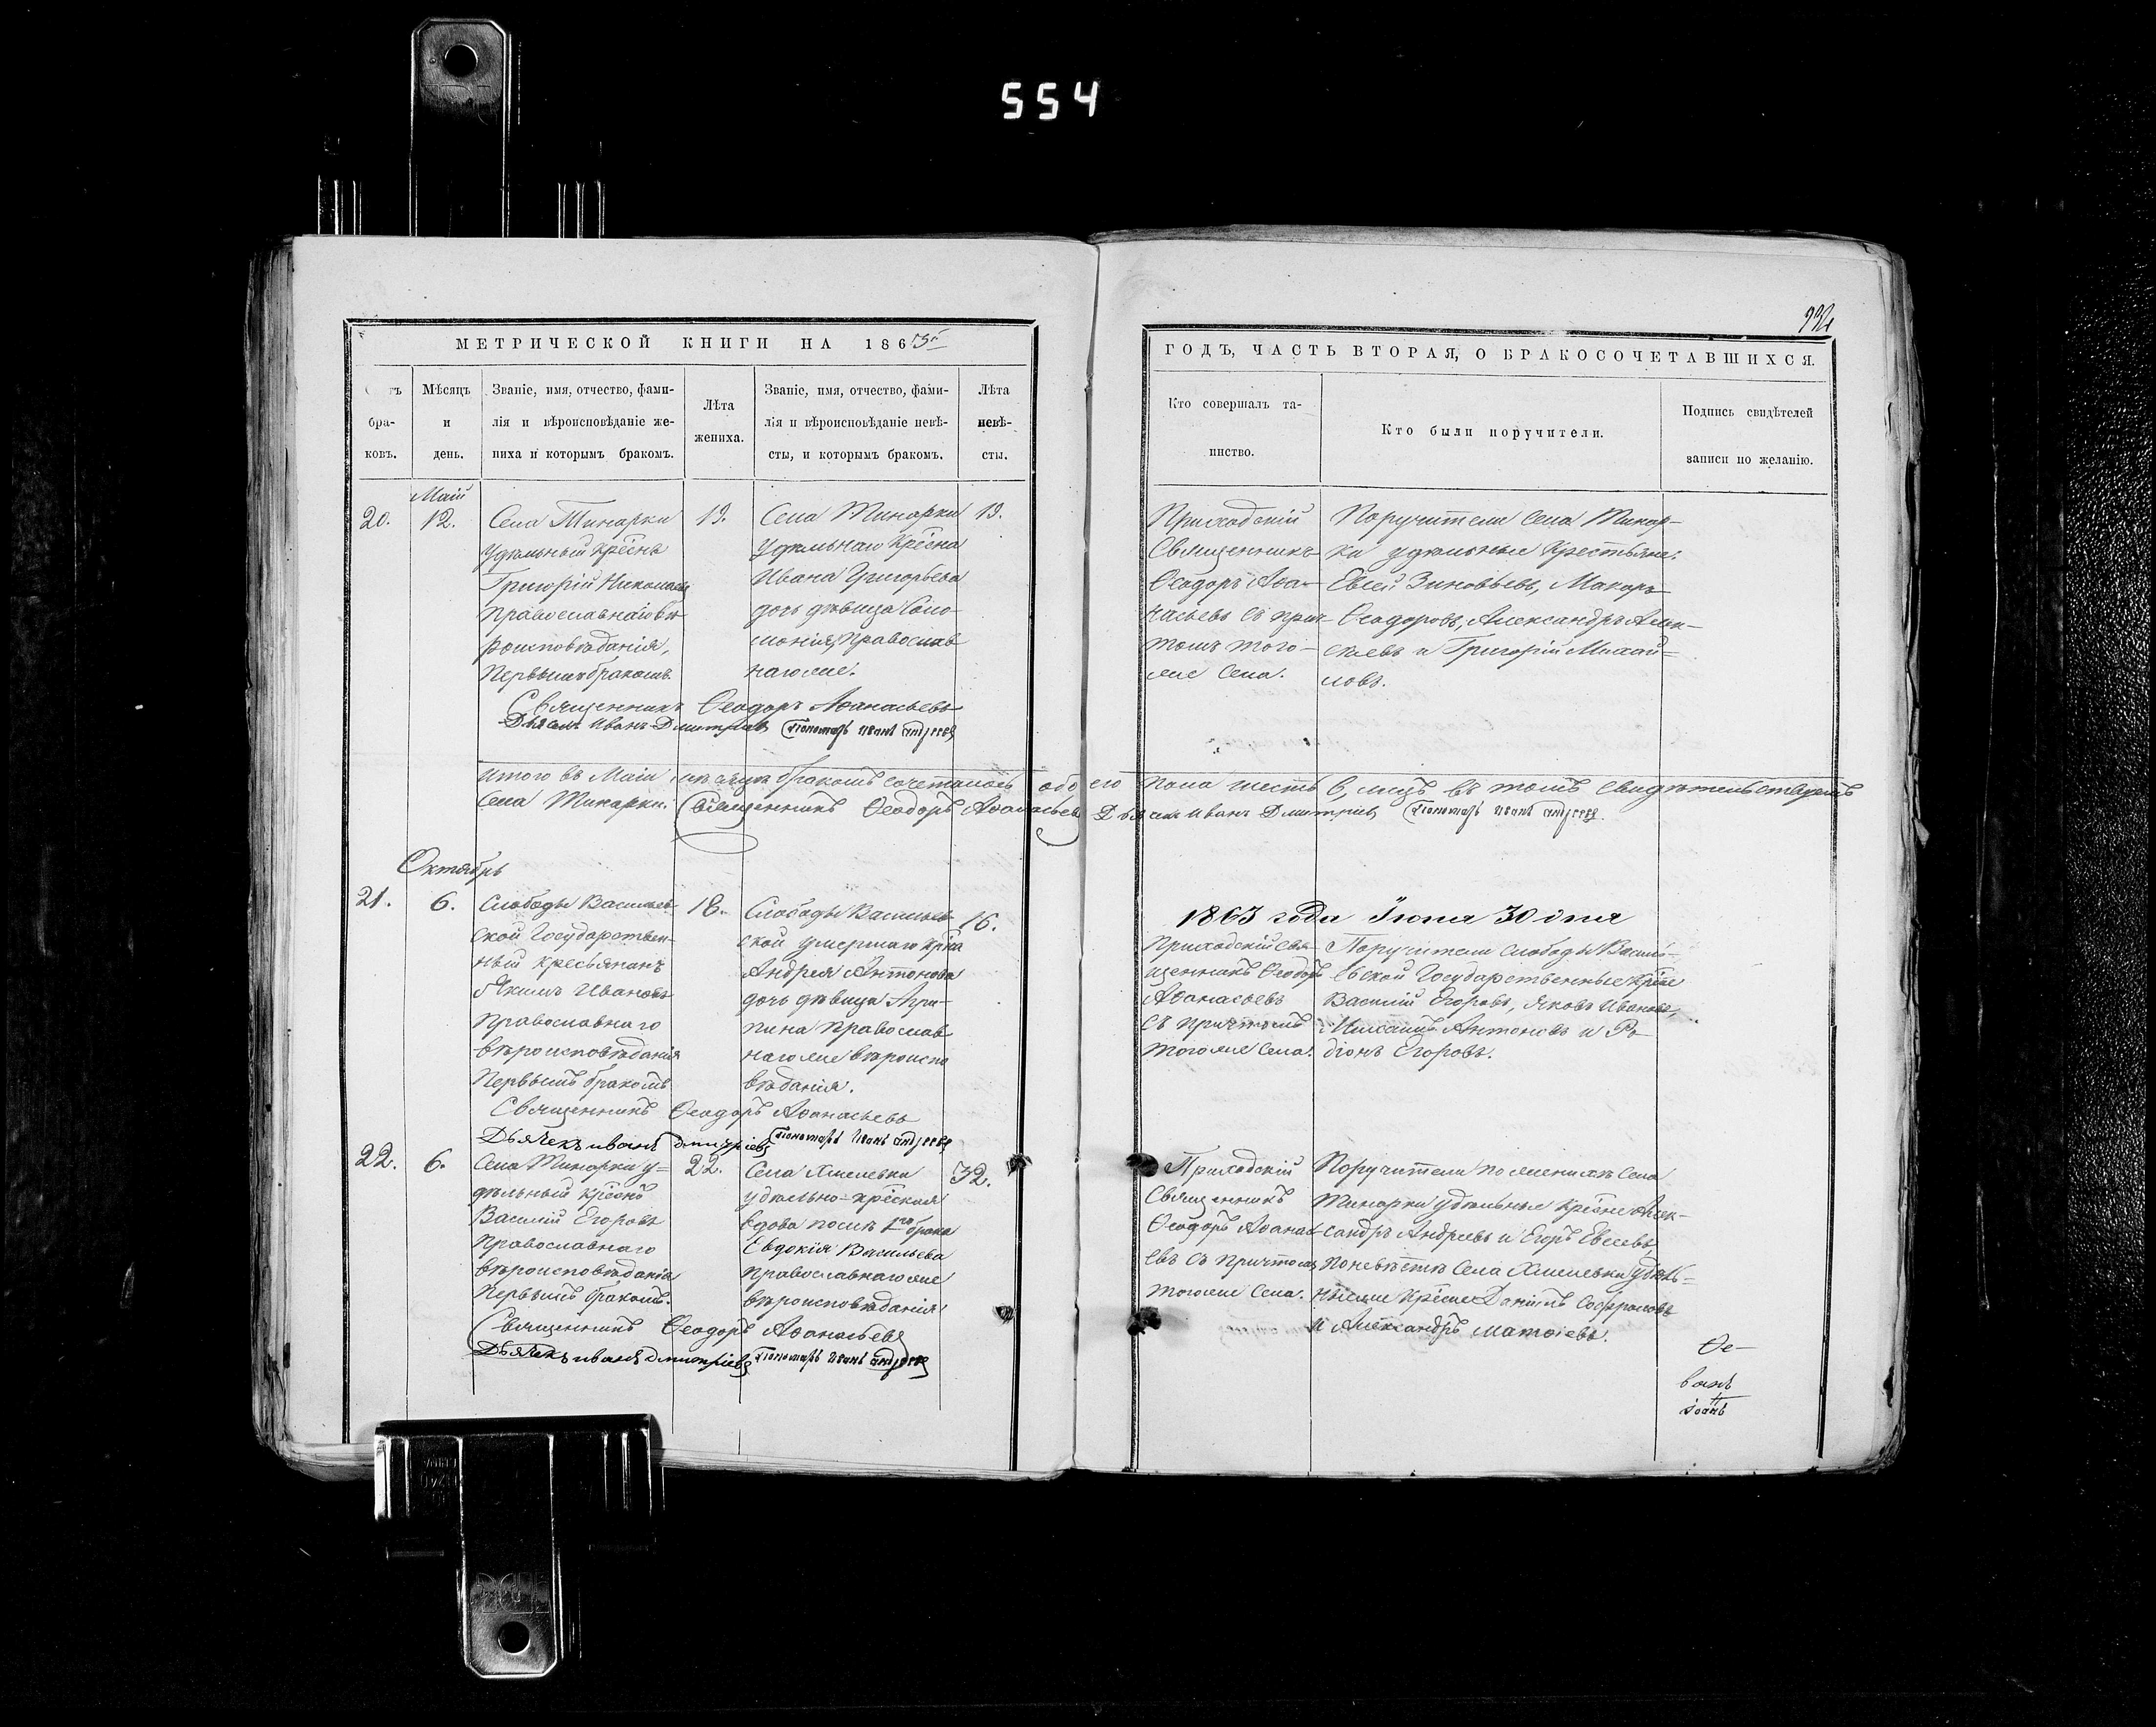 554
932
МЕТРИЧЕСКОЙ КНИГИ НА 1863
ГОДЪ, ЧАСТЬ ВТОРАЯ, О БРАКОСОЧЕТАВШИХСЯ.
бра-
ковъ.
Мѣсяцъ
и
день.
Званіе, имя, отчество, фами-
лія и вѣроисповѣданіе же-
ниха и которымъ бракомъ.
Лѣта
жениха.
Званіе, имя, отчество, фами-
лія и вѣроисповѣданіе невѣ-
сты, и которымъ бракомъ.
Лѣта
невѣ-
сты.
Кто совершалъ та-
инство.
Кто были поручители.
Подпись свидѣтелей
записи по желанію.
Маій
20.
12.
Села Тинарки
Удѣльный крѣснъ
Григорій Николаевъ
Православнаго вѣ-
роисповѣданія,
Первымъ бракомъ
19.
Села Тинарки
Удѣльнаго Крѣсна
Ивана Григорьева
дочь дѣвица Соло-
монія, Православ
наго же.
19.
Приходскій
Священникъ
Ѳеодоръ Аѳа-
насьевъ съ прич-
томъ того-
же Села.
Поручители Села Тинар-
ки удѣльные Крестьяне:
Евсей Зиновьевъ, Макаръ
Ѳеодоровъ, Александръ Алек-
сѣевъ и Григорій Михай=
ловъ.
Священникъ Ѳеодоръ Аѳанасьевъ
Дьячекъ Иванъ Дмитріевъ Пономарь Иванъ Андреевъ
Итого въ Маіи мѣсяцѣ бракомъ сочеталось обоего пола шесть 6, лицъ въ томъ свидѣтельствуемъ
Села Тинарки. Священникъ Ѳеодоръ Аѳанасьевъ Дьячекъ Иванъ Дмитріевъ Пономарь Иванъ Андреевъ.
Октябрь
21.
6.
Слободы Васильев
ской Государствен-
ный кресьянинъ
Якимъ Ивановъ
Православнаго
вѣроисповѣданія
Первымъ бракомъ
18.
Слободы Васильев
ской умершаго крѣна
Андрея Антонова
дочь дѣвица Агри-
пина Православ
наго же вѣроиспо
вѣданія.
16.
1863 года Іюня 30 дня
Приходскій свя-
щенникъ Ѳеодоръ
Аѳанасьевъ
съ причтомъ
того же Села.
Поручители Слободы Василь-
евской Государственные крѣне
Василій Егоровъ, Яковъ Ивановъ,
Михаилъ Антоновъ и Ро-
діонъ Егоровъ.
Священникъ Ѳеодоръ Аѳанасьевъ
Дьячекъ иванъ дмитріевъ Пономарь Иванъ Андреевъ
22.
6.
Села Тинарки у=
дѣльный крѣснъ
Василій Егоровъ
Православнаго
вѣроисповѣданія
Первымъ бракомъ.
22.
Села Хмелевки
удѣльно-крѣская
вдова послѣ 1го брака
Евдокія Васильева
Православнаго же
вѣроисповѣданія
32.
Приходскій
Священникъ
Ѳеодоръ Аѳанась
евъ съ причтомъ
того же Села.
Поручители по женихѣ Села
Тинарки удѣльные крѣсне Алек-
сандръ Андреевъ и Егоръ Евсеевъ,
по невѣстѣ Села Хмелевки удѣль-
ные же крѣсне Данилъ Софроновъ
и Александръ Матѳіевъ.
Священникъ Ѳеодоръ Аѳанасьевъ
Дьячекъ иванъ дмитріевъ Пономарь Иванъ Андреевъ
Ѳе-
ванъ
Іоанъ